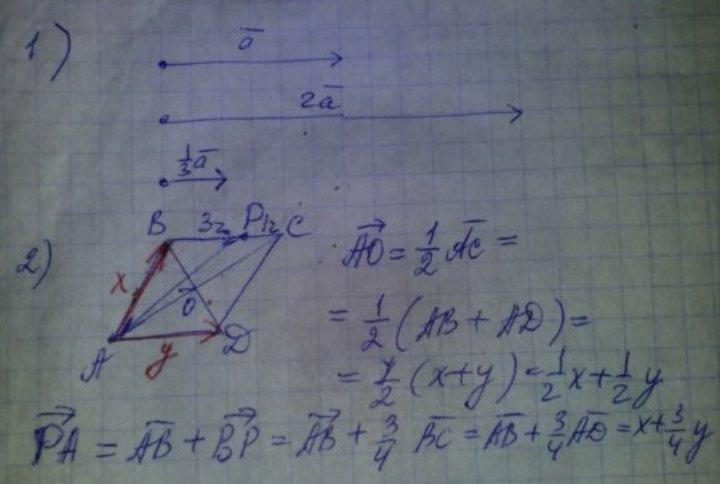 1)
a̅
2a̅
1/3 a̅
2)
B 3z P 1z C
x O
A y D
A͞O⃗ = 1/2 A͞C =
= 1/2 (AB + AD) =
= 1/2 (x+y) = 1/2 x + 1/2 y
P͞A⃗ = A͞B + B͞P⃗ = A͞B⃗ + 3/4 B͞C = A͞B + 3/4 A͞D = x + 3/4 y